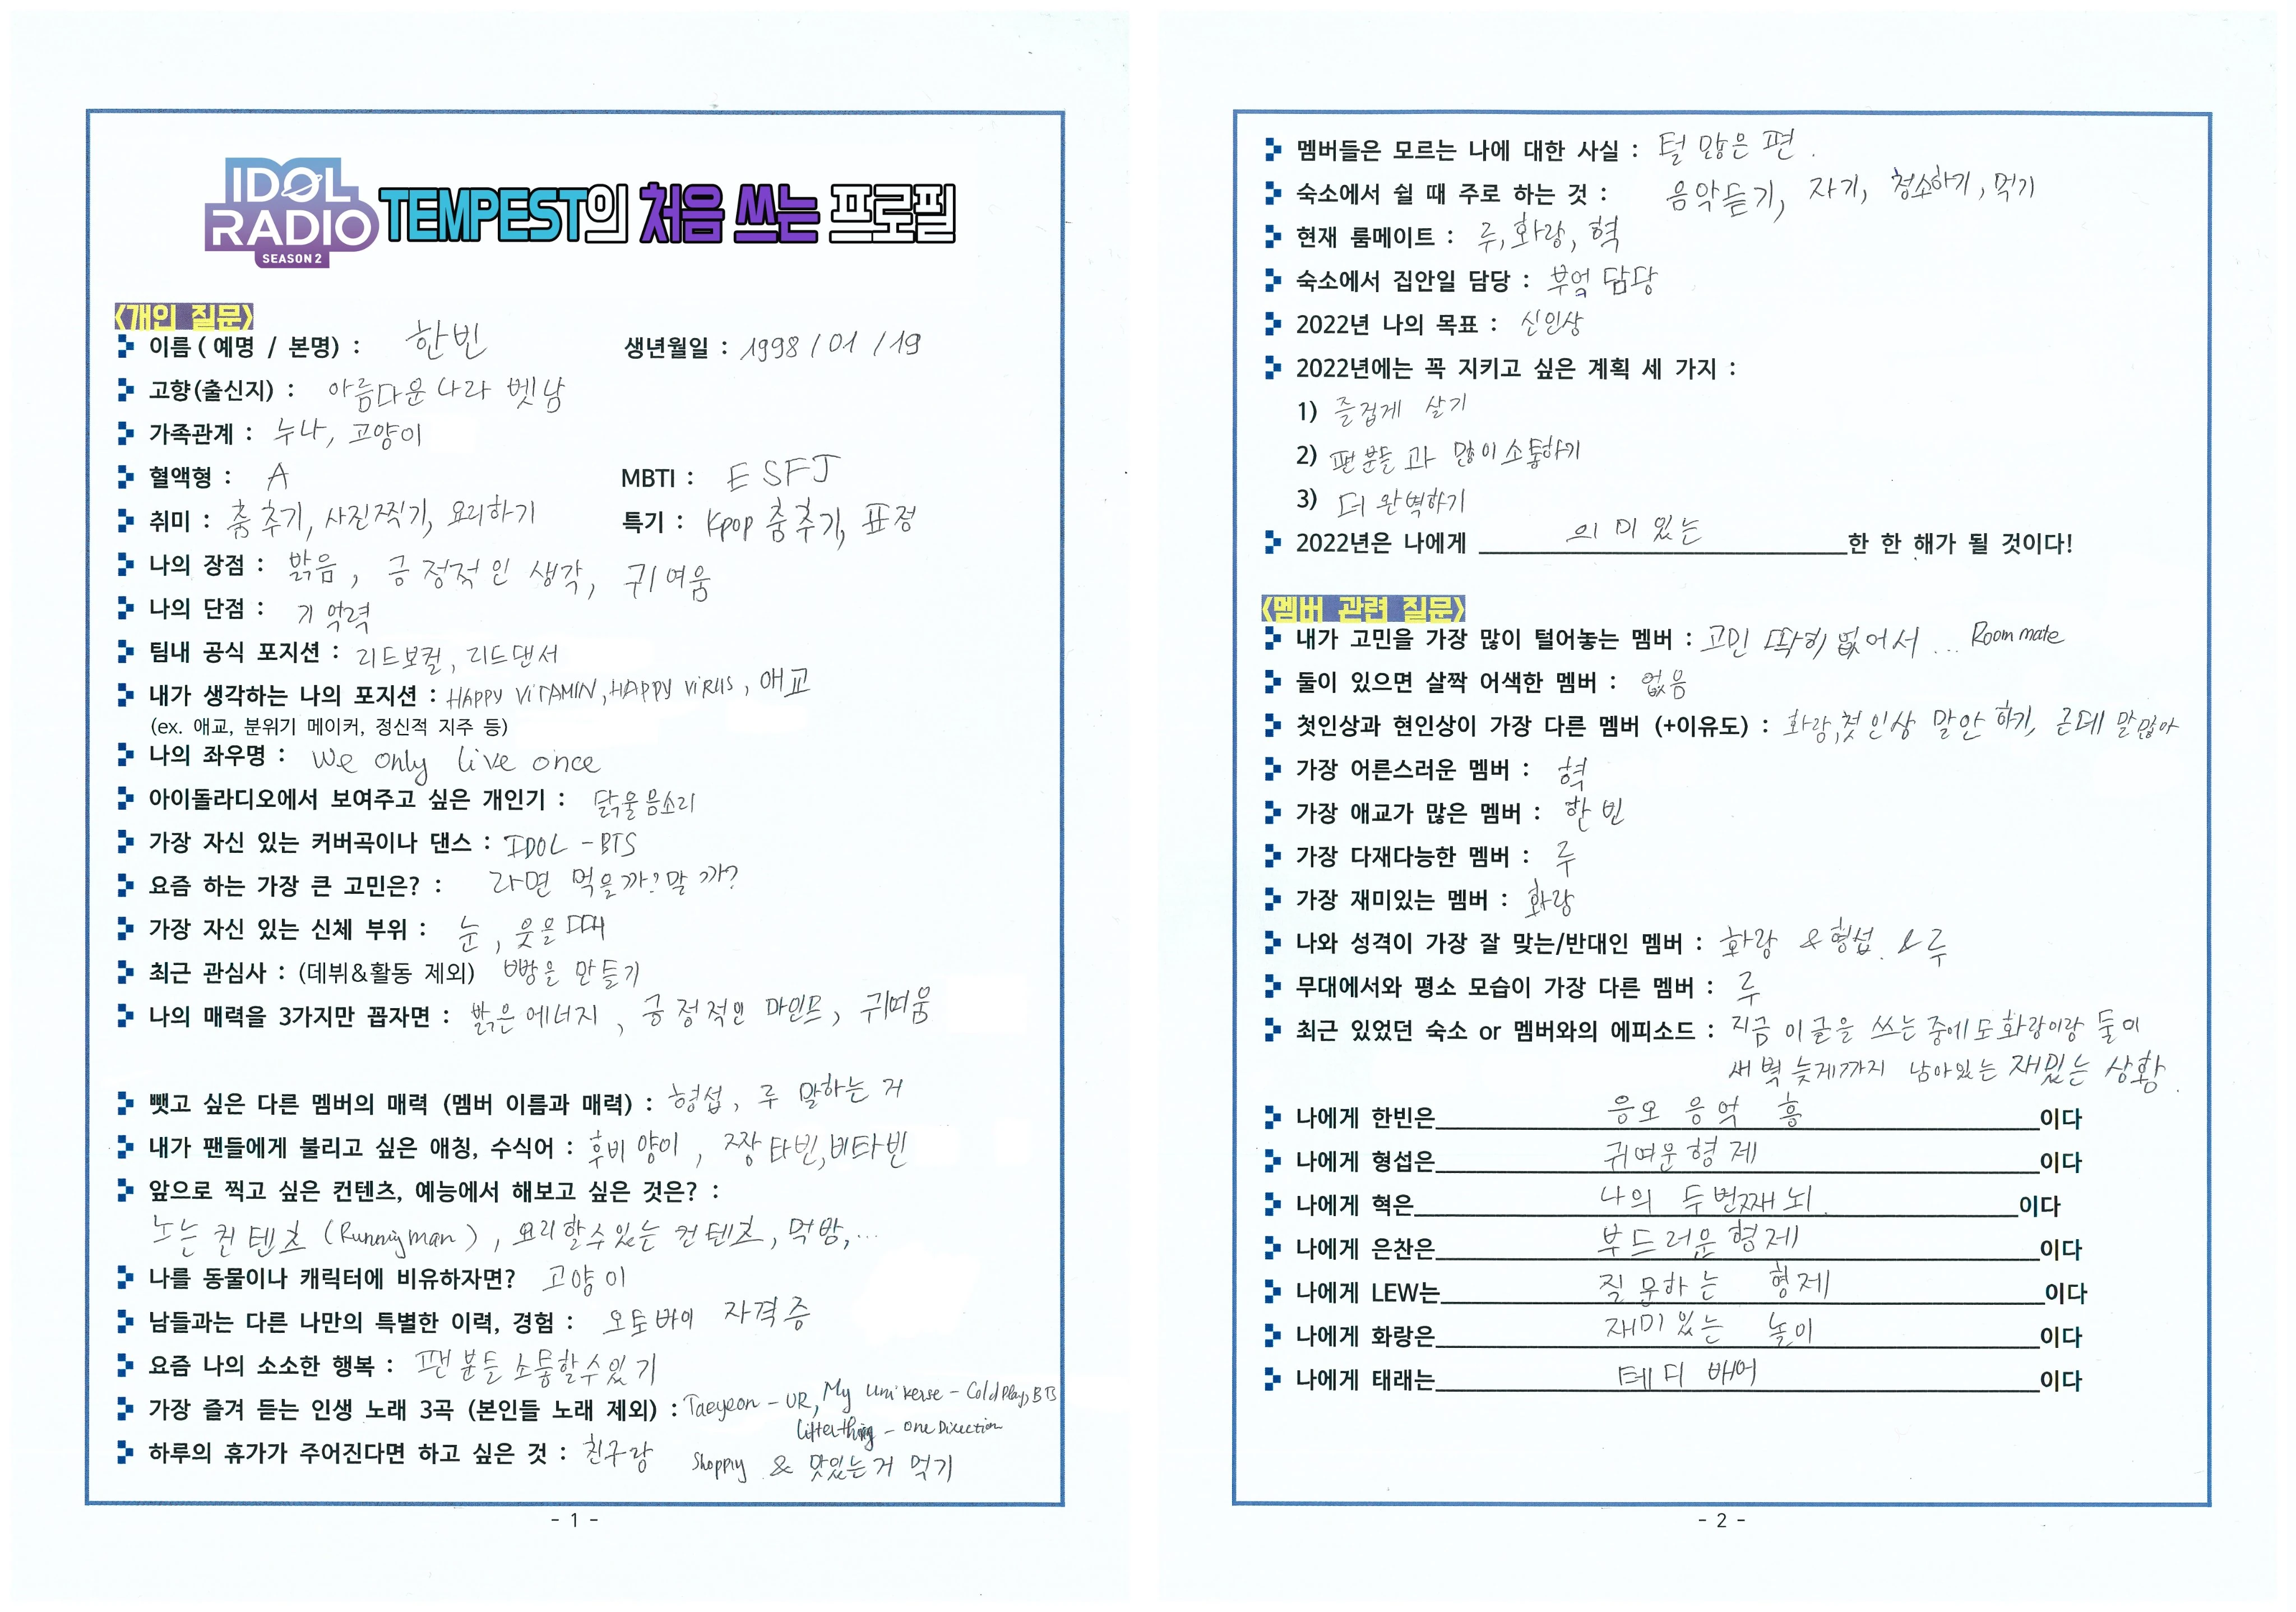 IDOL RADIO SEASON 2 TEMPEST의 처음 쓰는 프로필
<개인 질문>
이름 ( 예명 / 본명) : 한빈 생년월일 : 1998 / 01 / 19
고향(출신지) : 아름다운 나라 벳남
가족관계 : 누나, 고양이
혈액형 : A MBTI : ESFJ
취미 : 춤추기, 사진찍기, 요리하기 특기 : Kpop 춤추기, 표정
나의 장점 : 밝음, 긍정적인 생각, 귀여움
나의 단점 : 기억력
팀내 공식 포지션 : 리드보컬, 리드댄서
내가 생각하는 나의 포지션 : HAPPY ViTAMIN, HAPPY ViRUS, 애교
(ex. 애교, 분위기 메이커, 정신적 지주 등)
나의 좌우명 : We only live once
아이돌라디오에서 보여주고 싶은 개인기 : 닭울음소리
가장 자신 있는 커버곡이나 댄스 : IDOL - BTS
요즘 하는 가장 큰 고민은? : 라면 먹을까? 말까?
가장 자신 있는 신체 부위 : 눈, 웃을 때
최근 관심사 : (데뷔&활동 제외) 빵을 만들기
나의 매력을 3가지만 꼽자면 : 밝은 에너지, 긍정적인 마인드, 귀여움
뺏고 싶은 다른 멤버의 매력 (멤버 이름과 매력) : 형섭, 루 말하는 거
내가 팬들에게 불리고 싶은 애칭, 수식어 : 후비 양이, 짱타빈, 비타빈
앞으로 찍고 싶은 컨텐츠, 예능에서 해보고 싶은 것은? :
노는 컨텐츠 (Runnigman), 요리할수있는 컨텐츠, 먹방,...
나를 동물이나 캐릭터에 비유하자면? 고양이
남들과는 다른 나만의 특별한 이력, 경험 : 오토바이 자격증
요즘 나의 소소한 행복 : 팬분들 소통할수있기
가장 즐겨 듣는 인생 노래 3곡 (본인들 노래 제외) : Taeyeon - UR, My Universe - ColdPlay, BTS
- One Direction
하루의 휴가가 주어진다면 하고 싶은 것 : 친구랑 & 맛있는거 먹기
- 1 -
멤버들은 모르는 나에 대한 사실 : 털 많은 편.
숙소에서 쉴 때 주로 하는 것 : 음악듣기, 자기, 청소하기, 먹기
현재 룸메이트 : 루, 화랑, 혁
숙소에서 집안일 담당 : 부엌 담당
2022년 나의 목표 : 신인상
2022년에는 꼭 지키고 싶은 계획 세 가지 :
1) 즐겁게 살기
2) 팬분들과 많이소통하기
3) 더 완벽하기
2022년은 나에게 의미 있는 한 한 해가 될 것이다!
<멤버 관련 질문>
내가 고민을 가장 많이 털어놓는 멤버 : 고민 딱히 없어서 ... Room mate
둘이 있으면 살짝 어색한 멤버 : 없음
첫인상과 현인상이 가장 다른 멤버 (+이유도) : 화랑, 첫인상 말안 하기, 근데 말많아
가장 어른스러운 멤버 : 혁
가장 애교가 많은 멤버 : 한빈
가장 다재다능한 멤버 : 루
가장 재미있는 멤버 : 화랑
나와 성격이 가장 잘 맞는/반대인 멤버 : 화랑 & 형섭 & 루
무대에서와 평소 모습이 가장 다른 멤버 : 루
최근 있었던 숙소 or 멤버와의 에피소드 : 지금 이글을 쓰는 중에도 화랑이랑 둘이
새벽 늦게까지 남아있는 재밌는 상황.
나에게 한빈은 응오 응억 흥 이다
나에게 형섭은 귀여운형제 이다
나에게 혁은 나의 두번째 뇌. 이다
나에게 은찬은 부드러운 형제 이다
나에게 LEW는 질문하는 형제 이다
나에게 화랑은 재미있는 놀이 이다
나에게 태래는 테디 배어 이다
- 2 -